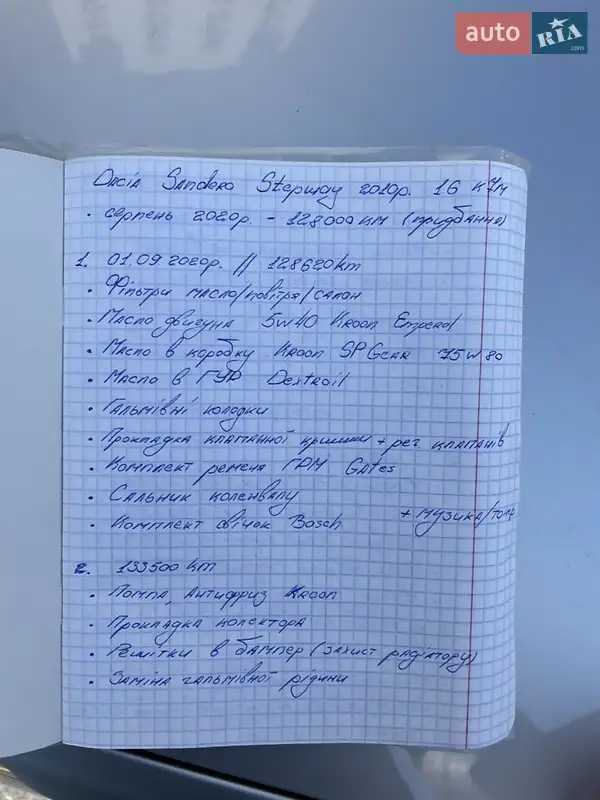 auto RIA .com
Dасіа Sandero Stepway 2010р. 1.6 к7м
• серпень 2020р. - 128000 км (придбання)
1. 01.09 2020р. // 128620 km
• Фільтри масло/повітря/салон
• Масло двигуна 5w40 Kroon Emperol
• Масло в коробку Kroon SP Gear 75w80
• Масло в ГУР Dextroil
• Гальмівні колодки
• Прокладка клапанної кришки + рег. клапанів
• Комплект ременя ГРМ Gates
• Сальник коленвалу
• Комплект свічок Bosch + музика/
2. 133500 km
• Помпа, Антифриз Kroon
• Прокладка колектора
• Решітки в бампер (захист радіатору)
• Заміна гальмівної рідини